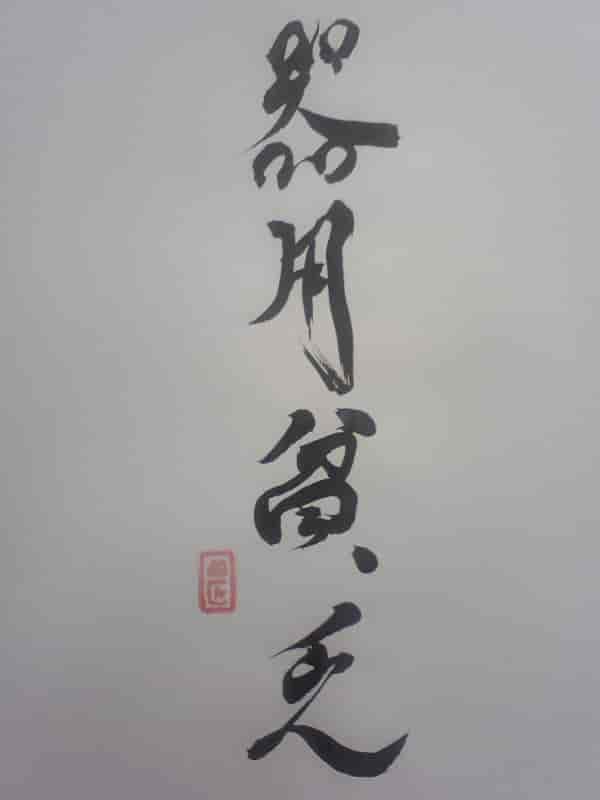 器用貧乏